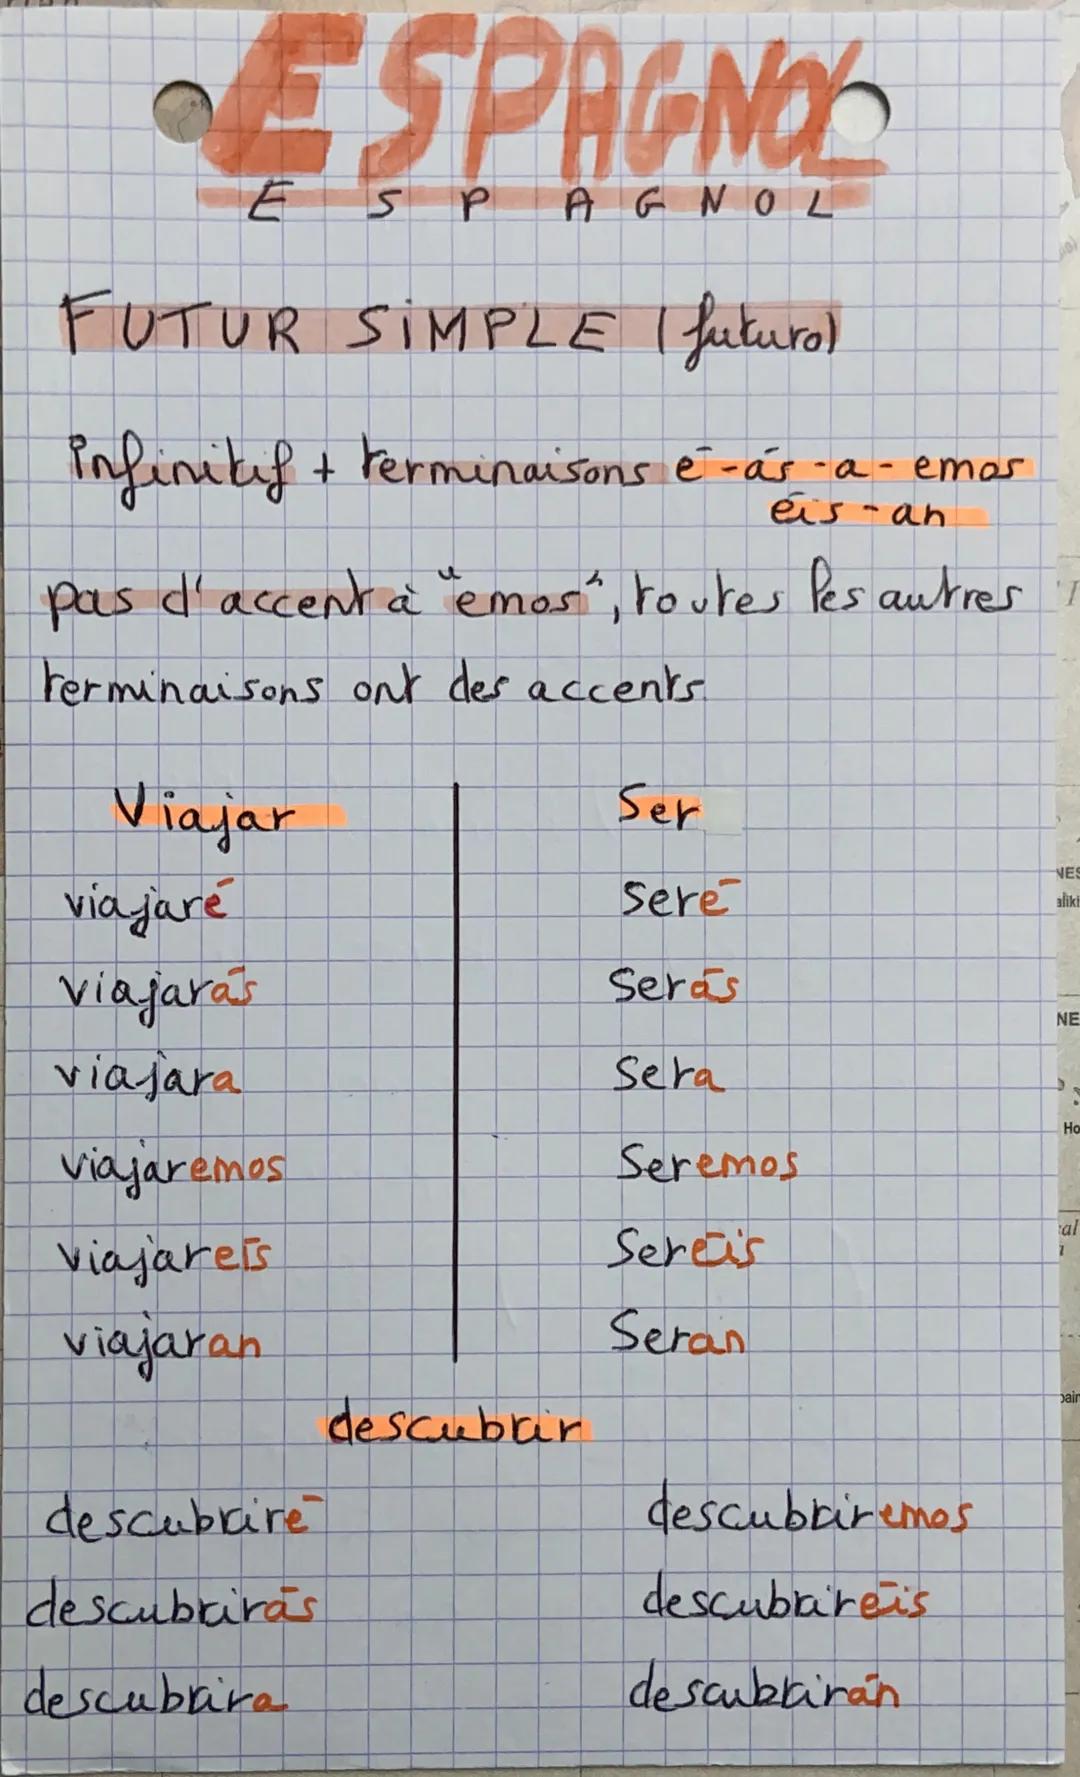 ESPAGNOL
E S P A G N O L
FUTUR SIMPLE (futuro)
infinitif + terminaisons é-ás-a-emos
éis-an
pas d'accent à "emos", toutes les autres
terminaisons ont des accents.
Viajar
viajaré
viajarás
viajara
viajaremos
viajareís
viajaran
Ser
Seré
Serás
Sera
Seremos
Seréis
Seran
descubrir
descubriré
descubrirás
descubrira
descubriremos
descubriréis
descubrirán